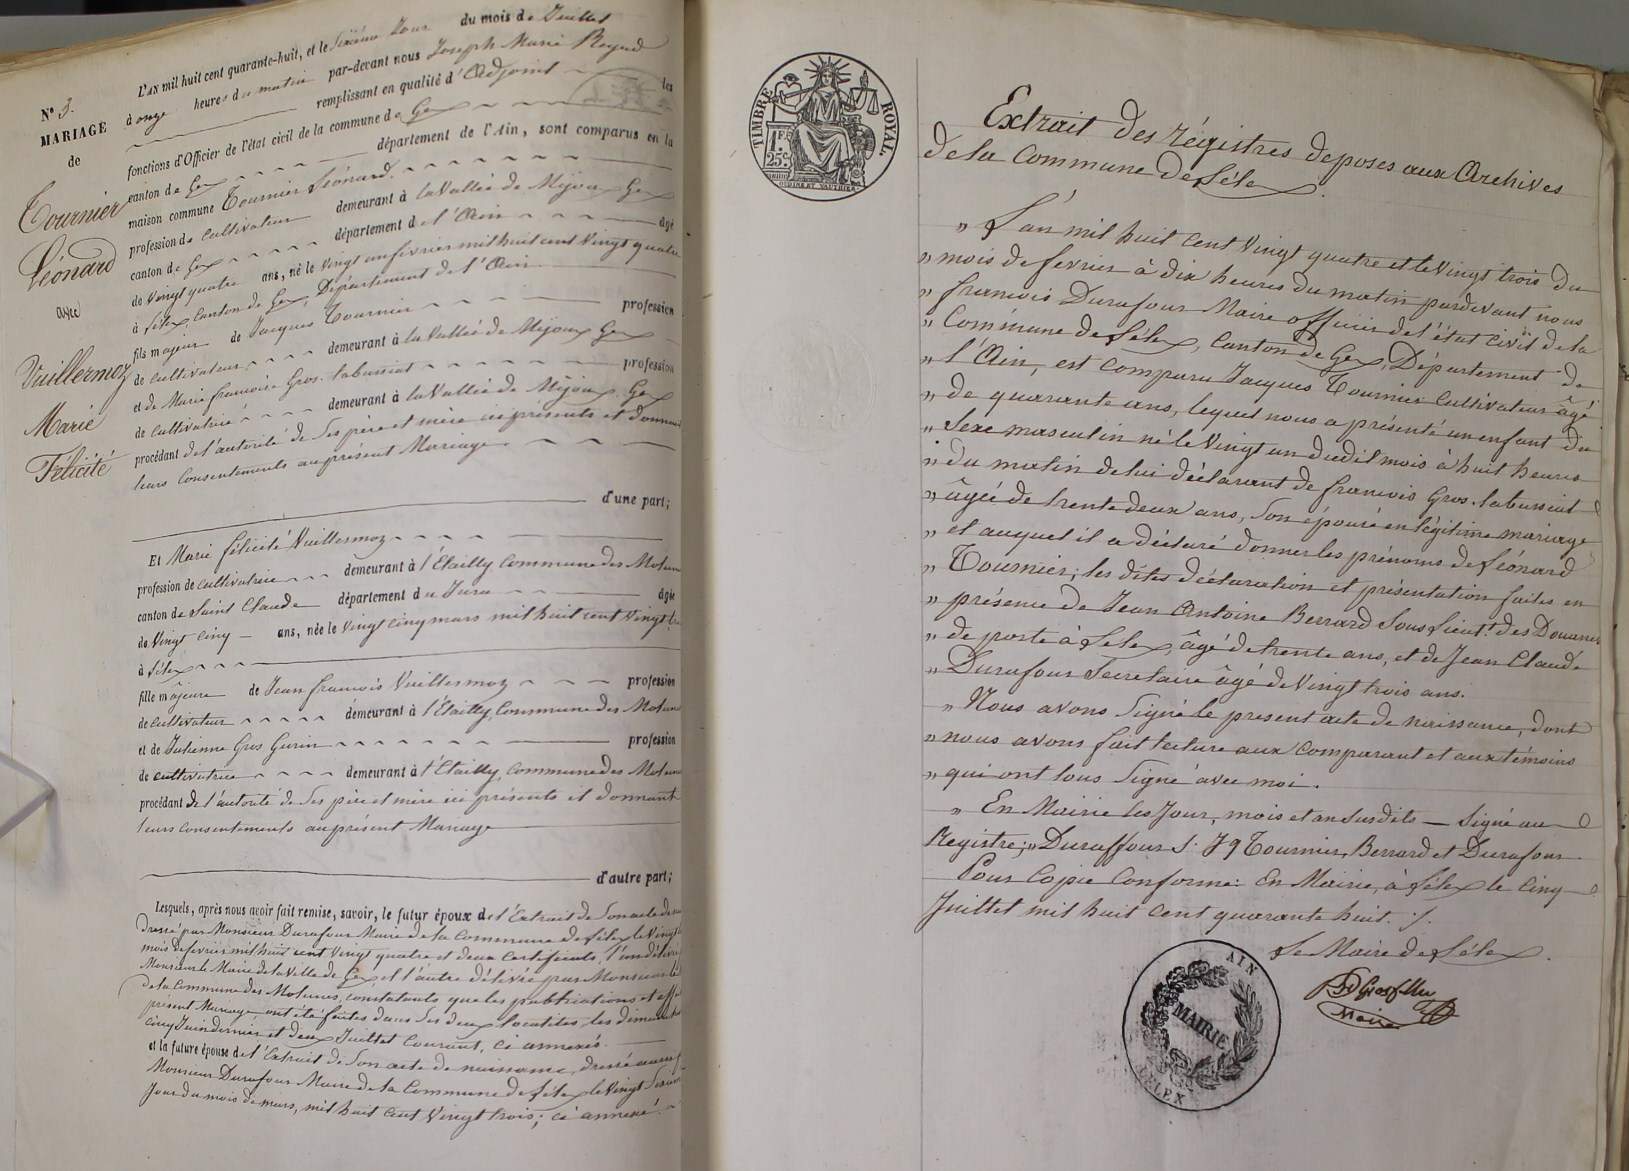 N° 3.
MARIAGE
de
Tournier
Léonard
avec
Vuillermoz
Marie
Félicité
L'AN mil huit cent quarante-huit, et le Sixième Jour du mois de Juillet
à onze heures du matin par-devant nous Joseph Marie Reged
remplissant en qualité d'Adjoint les
fonctions d'Officier de l'état civil de la commune de Gex
canton de Gex département de l'Ain, sont comparus en la
maison commune Tournier Léonard
profession de Cultivateur demeurant à la Vallée de Mijoux Gex
canton de Gex département de l'Ain âgé
de Vingt quatre ans, né le Vingt un février mil huit cent Vingt quatre
à Lélex, Canton de Gex, Département de l'Ain
fils majeur de Jacques Tournier profession
de Cultivateur demeurant à la Vallée de Mijoux Gex
et de Marie françoise Gros-tabussiat profession
de Cultivatrice demeurant à la Vallée de Mijoux, Gex
procédant de l'autorité de Ses père et mère ici présents et donnant
leurs Consentements au présent Mariage
d'une part;
Et Marie félicité Vuillermoz
profession de Cultivatrice demeurant à l'Etailly Commune des Molunes
canton de Saint Claude département du Jura âgée
de Vingt Cinq ans, née le Vingt Cinq mars mil huit cent Vingt
à Lélex
fille majeure de Jean françois Vuillermoz profession
de Cultivateur demeurant à l'Etailly, Commune des Molunes
et de Julienne Gros Gurin profession
de cultivatrice demeurant à l'Etailly, Commune des Molunes
procédant de l'autorité de Ses père et mère ici présents et donnant
leurs Consentements au présent Mariage
d'autre part;
Lesquels, après nous avoir fait remise, savoir, le futur époux de l'Extrait de Son acte de
dressé par Monsieur Durafour Maire de la Commune de Lélex le Vingt
mois de février mil huit cent Vingt quatre et deux Certificats, l'un délivré
Monsieur le Maire de la Ville de Gex et l'autre délivré par Monsieur le
de la Commune des Molunes, constatants que les publications
présent Mariage ont été faites dans les deux localités, les dimanches
cinq Juin dernier et deux Juillet Courant, ci annexés.
et la future épouse de l'Extrait de Son acte de naissance, dressé
Monsieur Durafour Maire de la Commune de Lélex le Vingt
Jour du mois de mars, mil huit Cent Vingt trois; ci annexé.
TIMBRE ROYAL.
1 F. 25 c.
Extrait des régistres deposes aux Archives
de la Commune de Lélex.
" L'án mil huit Cent Vingt quatre et le Vingt trois du
" mois de fevrier à dix heures du matin pardevant nous
" francois Durafour Maire officier de l'état civil de la
" Commune de Lélex, Canton de Gex, Département de
" l'Ain, est comparu Jacques Tournier Cultivateur âgé
" de quarante ans, lequel nous a présenté un enfant du
" Sexe masculin né le Vingt un dudit mois à huit heures
" du matin de lui déclarant de francois Gros-tabussiat
" âgée de trente deux ans, Son épouse en légitime mariage
" et auquel il a déclaré donner les prénoms de Léonard
" Tournier; les dites déclaration et présentation faites en
" présence de Jean Antoine Berrard Sous Lieut.t des Douanes
" de poste à Lélex, âgé de trente ans, et de Jean Claude
" Durafour Secretaire âgé de Vingt trois ans.
" Nous avons Signé le present acte de naissance, dont
" nous avons fait lecture aux Comparant et aux témoins
" qui ont tous Signé avec moi.
" En Mairie les Jour, mois et an Susdits — Signé au
Registre; " Duraffour S. Jq Tournier, Berrard et Durafour
Pour Copie Conforme: En Mairie, à Lélex le Cinq
Juillet mil huit Cent quarante huit. ./.
Le Maire de Lélex.
Maire
AIN
MAIRIE
LÉLEX